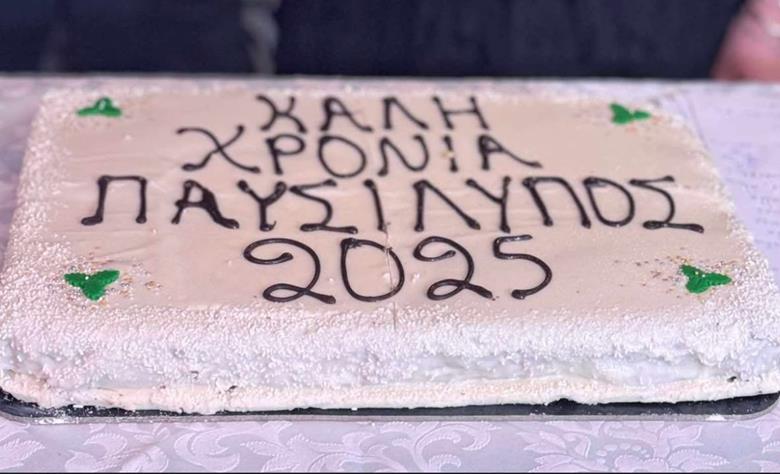 ΚΑΛΗ
ΧΡΟΝΙΑ
ΠΑΥΣΙΛΥΠΟΣ
2025